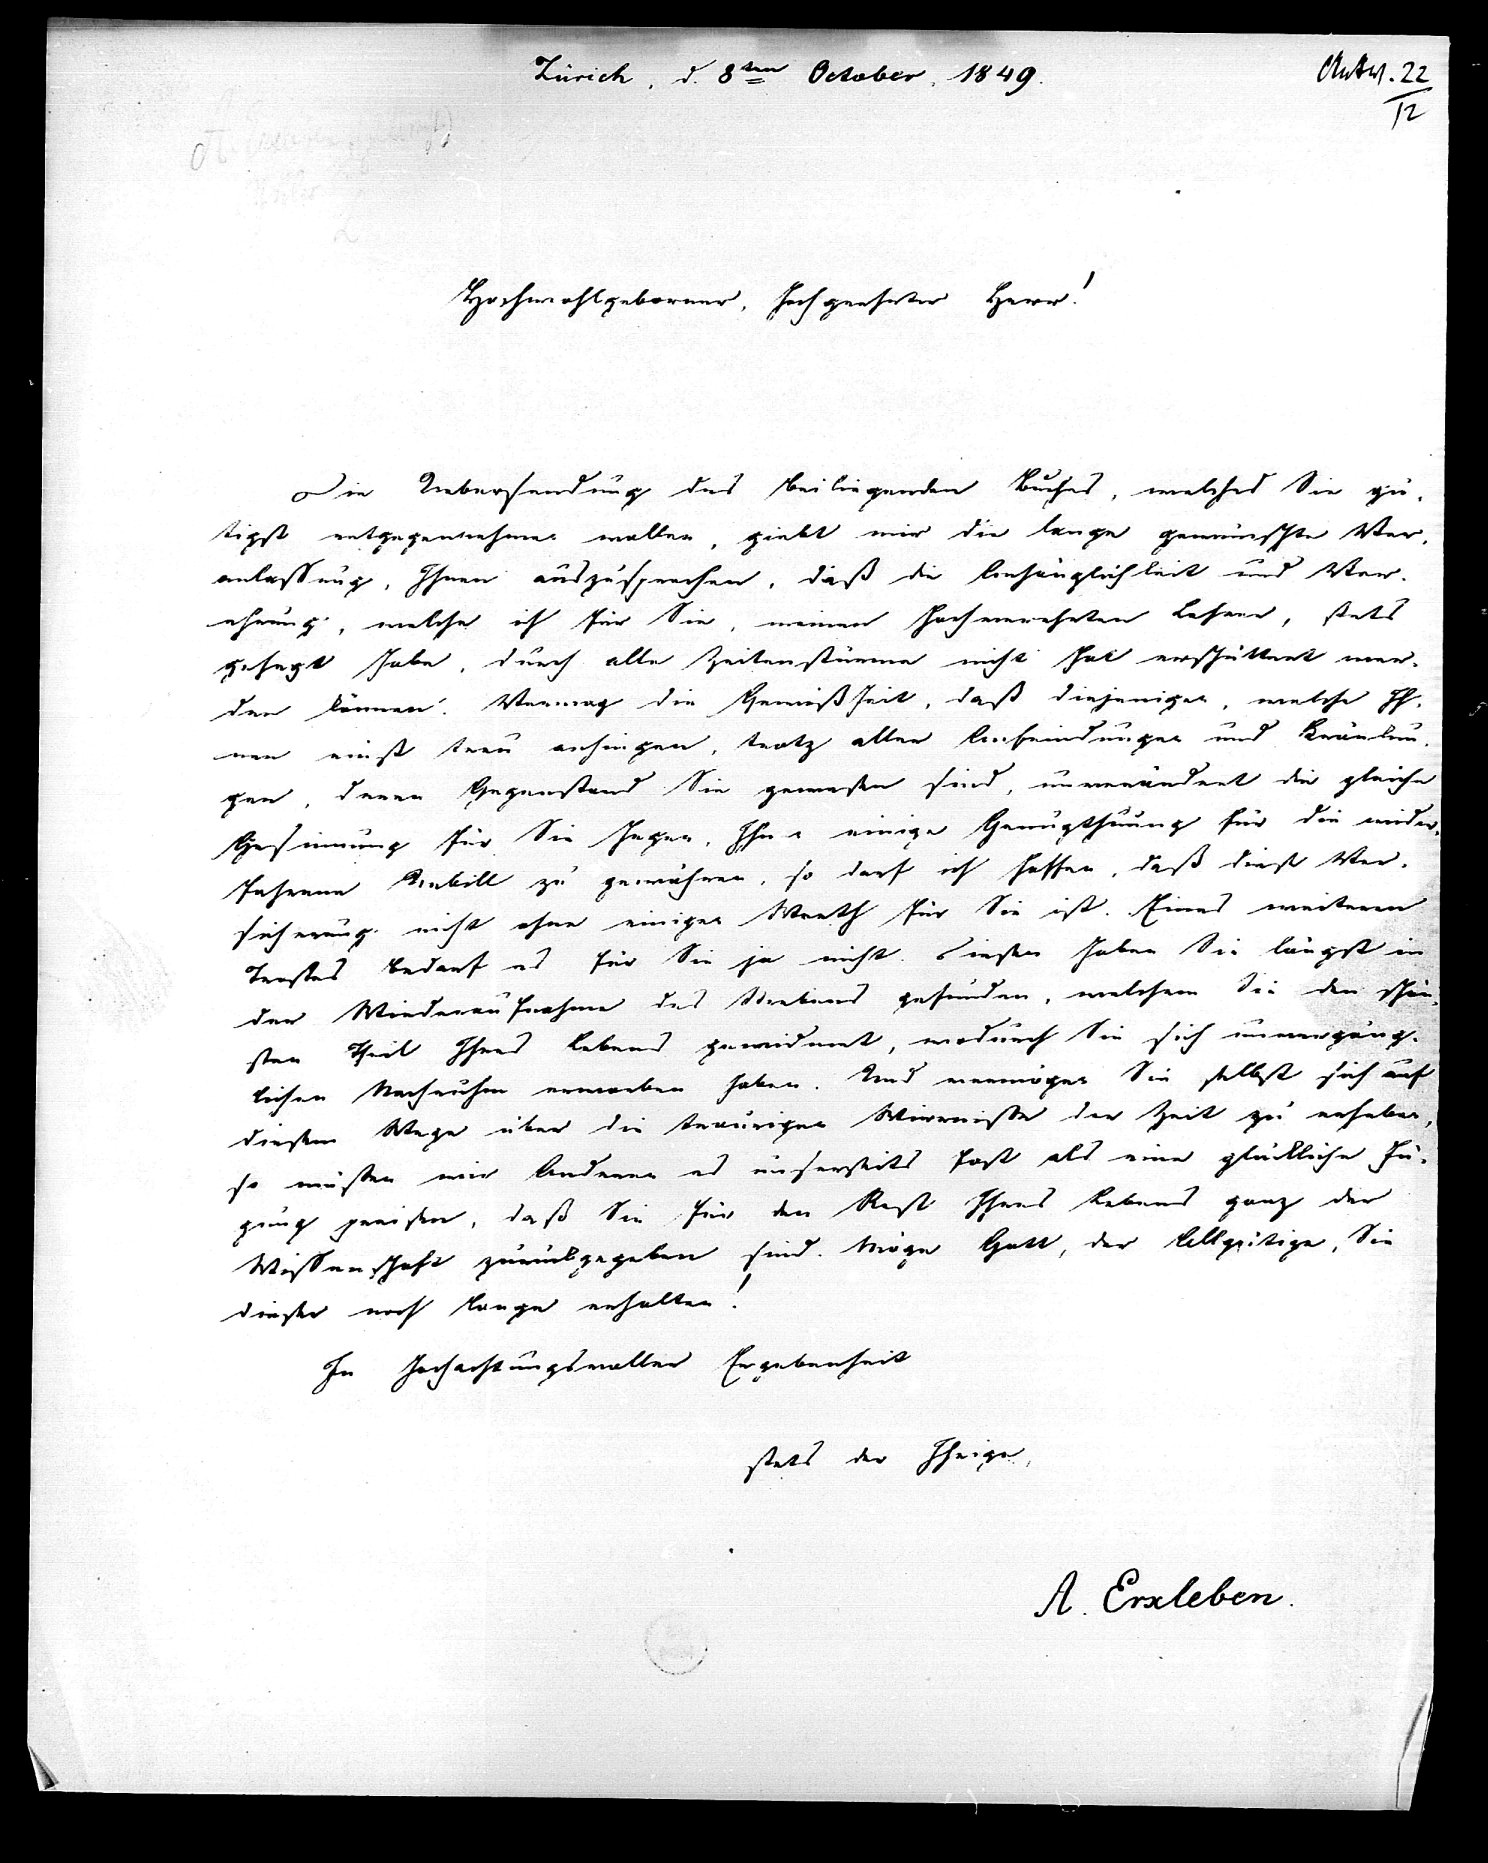 Zürich, d. 8ten October, 1849.
Antw. 22/12
Hochwohlgeborner, hochgeehrter Herr!
Die Uebersendung des beiliegenden Buches, welches Sie gü-
tigst entgegennehmen wollen, giebt mir die lange gewünschte Ver-
anlassung, Ihnen auszusprechen, daß die Anhänglichkeit und Ver-
ehrung, welche ich für Sie, meinen hochverehrten Lehrer, stets
gehegt habe, durch alle Zeitenstürme nicht hat erschüttert wer-
den können. Vermag die Gewißheit, daß diejenigen, welche Ih-
nen einst treu anhingen, trotz aller Anfeindungen und Kränkun-
gen, deren Gegenstand Sie gewesen sind, unverändert die gleiche
Gesinnung für Sie hegen, Ihnen einige Genugthuung für die wider-
fahrene Unbill zu gewähren, so darf ich hoffen, daß diese Ver-
sicherung nicht ohne einigen Werth für Sie ist. Eines weiteren
Trostes bedarf es für Sie ja nicht. Diesen haben Sie längst in
der Wiederaufnahme des Strebens gefunden, welchem Sie den schön-
sten Theil Ihres Lebens gewidmet, wodurch Sie sich unvergäng-
lichen Nachruhm erworben haben. Und vermögen Sie selbst sich auf
diesem Wege über die traurigen Wirrnisse der Zeit zu erheben,
so müssen wir Anderen es unserseits fast als eine glückliche Fü-
gung preisen, daß Sie für den Rest Ihres Lebens ganz der
Wissenschaft zurückgegeben sind. Möge Gott, der Allgütige, Sie
dieser noch lange erhalten!
In hochachtungsvoller Ergebenheit
stets der Ihrige,
A. Erxleben.